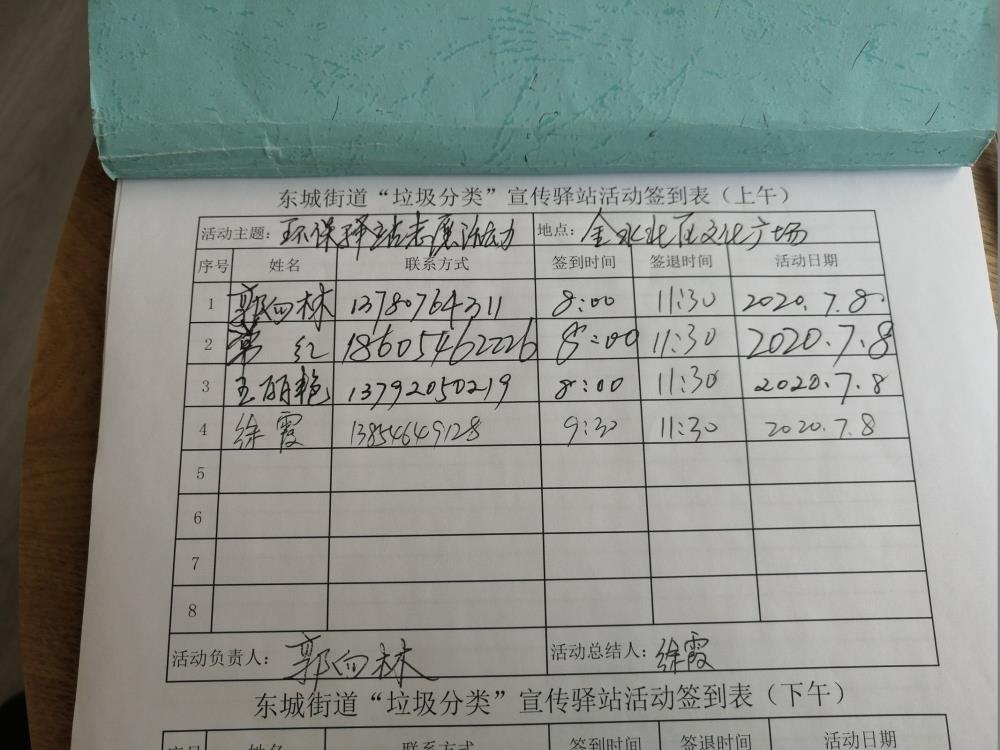 东城街道“垃圾分类”宣传驿站活动签到表（上午）
活动主题：环保驿站志愿活动 地点：金水北区文化广场
序号 姓名 联系方式 签到时间 签退时间 活动日期
1 郭向林 13780764311 8:00 11:30 2020.7.8
2 红 18605462226 8:00 11:30 2020.7.8
3 王丽艳 13792050219 8:00 11:30 2020.7.8
4 徐霞 13854649128 9:30 11:30 2020.7.8
5
6
7
8
活动负责人：郭向林 活动总结人：徐霞
东城街道“垃圾分类”宣传驿站活动签到表（下午）
序号 姓名 联系方式 签到时间 签退时间 活动日期